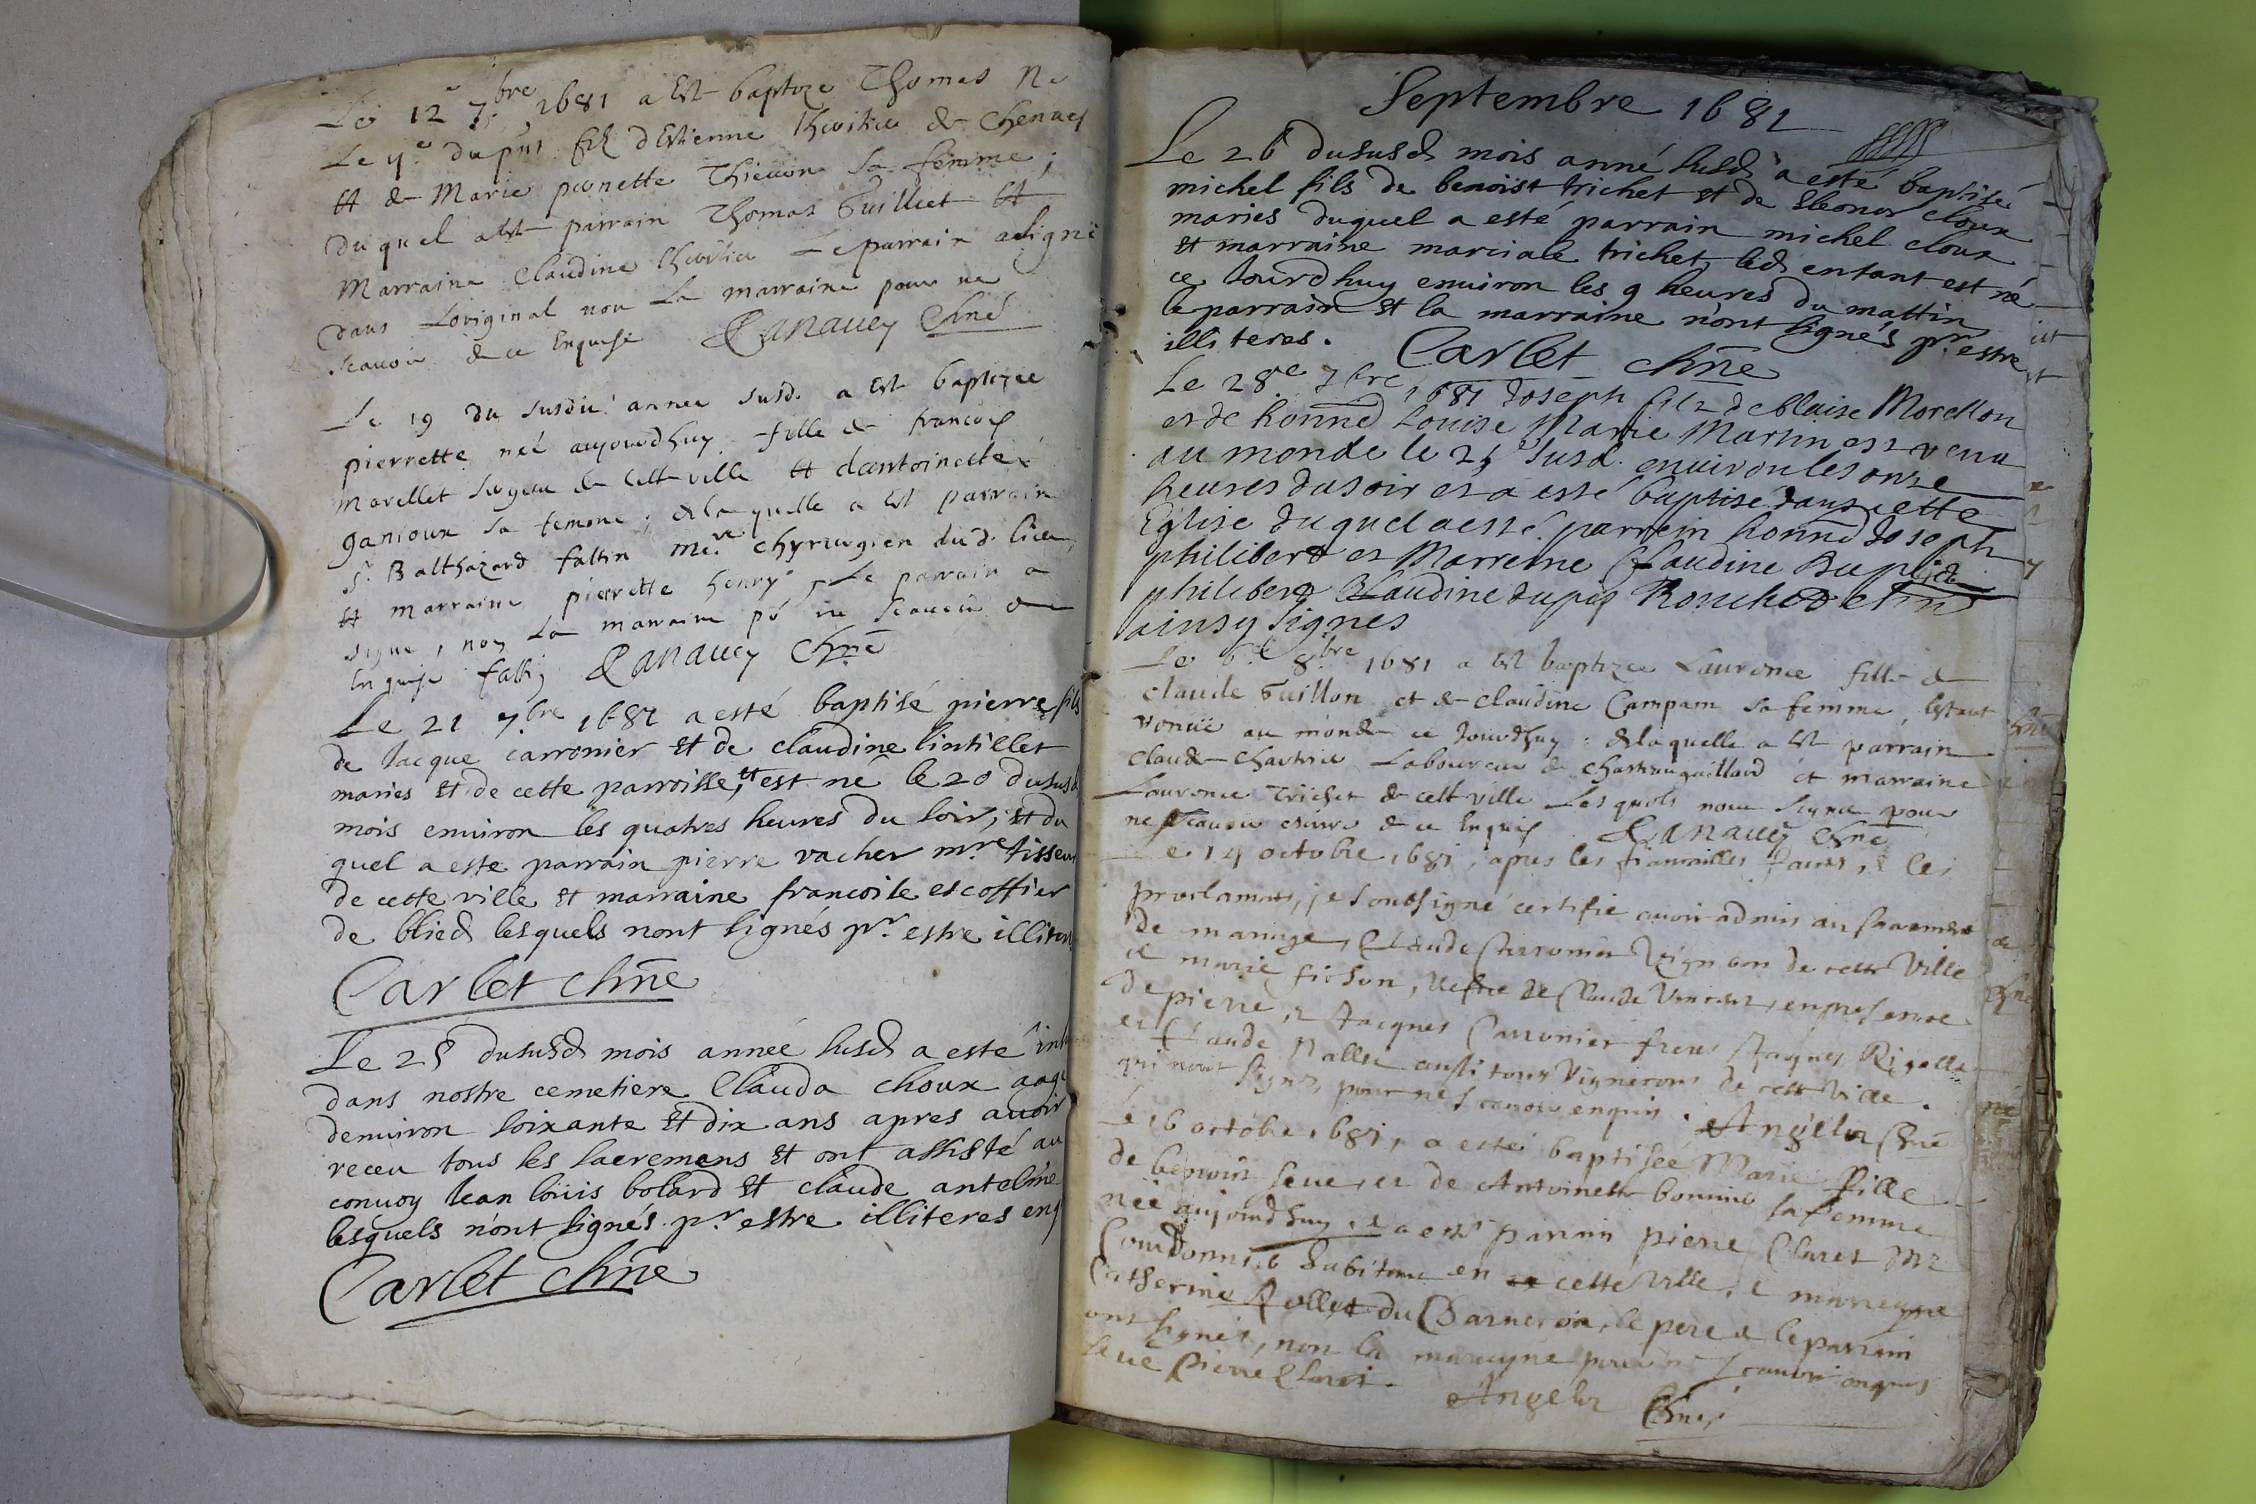 Le 12e 7bre 1681 a est baptize Thomas Ne
Le 4e du pnt fils dEstienne de Chenaes
Et de Marie pernette sa femme ;
duquel a est parrain Thomas Guillet Et
Marraine Claudine Le parrain a signé
dans Loriginal non La marraine pour ne
scavoir de ce Enquise Ranauey Chne
Le 19 du susdit année susd. a Est baptizee
pierrette née aujourdhuy fille de francois
Morellet de cette ville Et dantoinette
ganioux sa femme ; de laquelle a Est parrain
Sr. Balthazard fattin Me chyrurgien dud. lieu,
Et marraine pierrette henry, Le parrain a
signé, non La marraine pr ne scavoir de ce
Enquise fattin Ranauey Chne
Le 21 7bre 1681 a esté baptisé pierre fils
de Jacque carronier et de claudine lintillet
mariés et de cette parroisse, et est né le 20 dususd
mois environ les quatres heures du soir, et du
quel a esté parrain pierre vacher mre tisseur
de cette ville et marraine francoise escoffier
de blied lesquels nont signés pr. estre
Carlet chne
Le 25 dususd mois année susd a esté
dans nostre cemetiere Clauda choux aagé
denuiron soixante et dix ans apres auoir
receu tous les sacremens et ont assisté au
conuoy Jean loüis bolard et claude antelme
lesquels n'ont signés pr estre illiteres enq
Carlet chne
Septembre 1681
Le 26 dususd mois anné susd a esté baptisé
michel fils de benoist trichet et de Eleonor cloux
mariés duquel a esté parrain michel cloux
et marraine marciale trichet, led enfant est né
ce Jourdhuy enuiron les 9 heures du mattin
le parrain et la marraine n'ont signés pr estre
illiteres. Carlet chne
Le 28e 7bre 1681 Joseph filz de blaise Morellon
et de honned Louise Marie Martin est venu
au monde le 25 susd. enuiron les onze
heures du soir et a esté baptisé dans cette
Eglise duquel a esté parrein honned Joseph
philibert et Marreine Claudine Dupuis
philibert Claudine dupuis Ronchet chne
ainsy signes
Le 6e 8bre 1681 a Est baptizee Laurence fille de
claude Guillon et de claudine Campam sa femme, Estant
venuë au monde ce Jourdhuy : de laquelle a Est parrain
Claude Laboureur de et marraine
Laurence Trichet de cette ville Lesquels nont signé pour
ne scauoir escrire de ce Enquis Ranauey Chne
Le 14 octobre 1681, apres les fiancailles faites, & les
proclamations, je soubsigné certifie auoir admis au sacrement
de mariage, Claude Carronier Vigneron de cette Ville
& marie fichon, vefue de Claude Vincent, en presence
de pierre, & Jacques Carronier freres Jaques Rigollet
et Claude Pallu aussi tous Vignerons de cette Ville.
qui n'ont signé, pour ne scauoir enquis. Angelin Chne
Le 16 octobre 1681, a esté baptisée Marie fille
de benoist seue, et de Antoinette bonnin sa femme
née aujourdhuy, & a esté parrain pierre Claret Mr
Courdonnier habitant en cette Ville, & marreyne
Catherine Rollet du Charneron, le pere & le parrain
ont signés, non la marreyne pour ne scauoir enquis
seue Pierre Claret. Angelin Chne